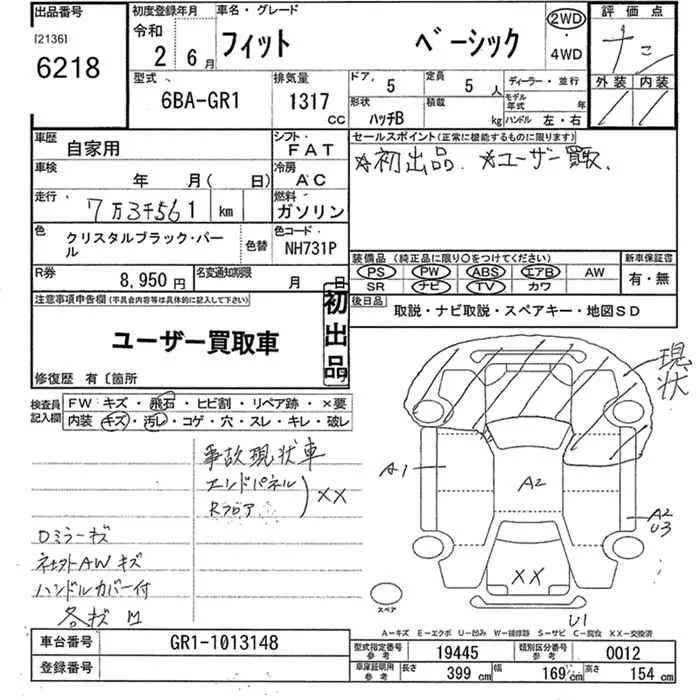 出品番号
[2136]
6218
初度登録年月
令和
2 6月
車名・グレード
フィット ベーシック
2WD
・
4WD
評価点
外装 内装
型式
6BA-GR1
排気量
1317 CC
ドア, 5
定員 5 人
形状 ハッチB
積載 kg
ディーラー・並行
モデル年式 年
ハンドル 左・右
車歴 自家用
シフト, FAT
車検 年 月( 日)
冷房 AC
走行 7万3千561 km
燃料 ガソリン
色 クリスタルブラック・パール
色替
色コード・ NH731P
R券 8,950円
名変通知期限 月 日
セールスポイント(正常に機能するものに限ります)
☆初出品. ☆ユーザー買取.
装備品 (純正品に限り○をつけてください)
PS PW ABS エアB AW
SR ナビ TV カワ
新車保証書
有・無
後日品
取説・ナビ取説・スペアキー・地図SD
注意事項申告欄(不具合内容等は具体的に記入して下さい)
ユーザー買取車
初出品
修復歴 有〔箇所
検査員記入欄
FW キズ・飛石・ヒビ割・リペア跡・×要
内装 キズ・汚レ・コゲ・穴・スレ・キレ・破レ
事故現状車
エンドパネル
Rフロア
××
Dミラーキズ
AWキズ
ハンドルカバー付
現状
A1
A2
A2
U3
××
U1
スペア
A-キズ E-エクボ U-凹み W-補修跡 S-サビ C-腐食 XX-交換済
車台番号 GR1-1013148
登録番号
型式指定番号 参考 19445
類別区分番号 参考 0012
車庫証明用 参考 長さ 399 cm 幅 169 cm 高さ 154 cm